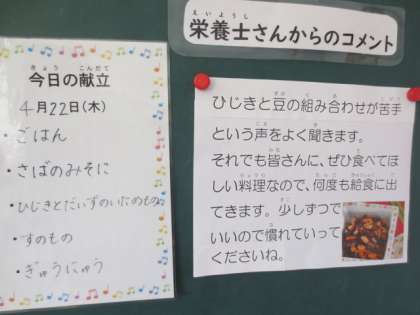 今日の献立
4月22日(木)
・ごはん
・さばのみそに
・ひじきとだいずのいためもの
・すのもの
・ぎゅうにゅう
栄養士さんからのコメント
ひじきと豆の組み合わせが苦手
という声をよく聞きます。
それでも皆さんに、ぜひ食べてほ
しい料理なので、何度も給食に出
てきます。少しずつで
いいので慣れていって
くださいね。